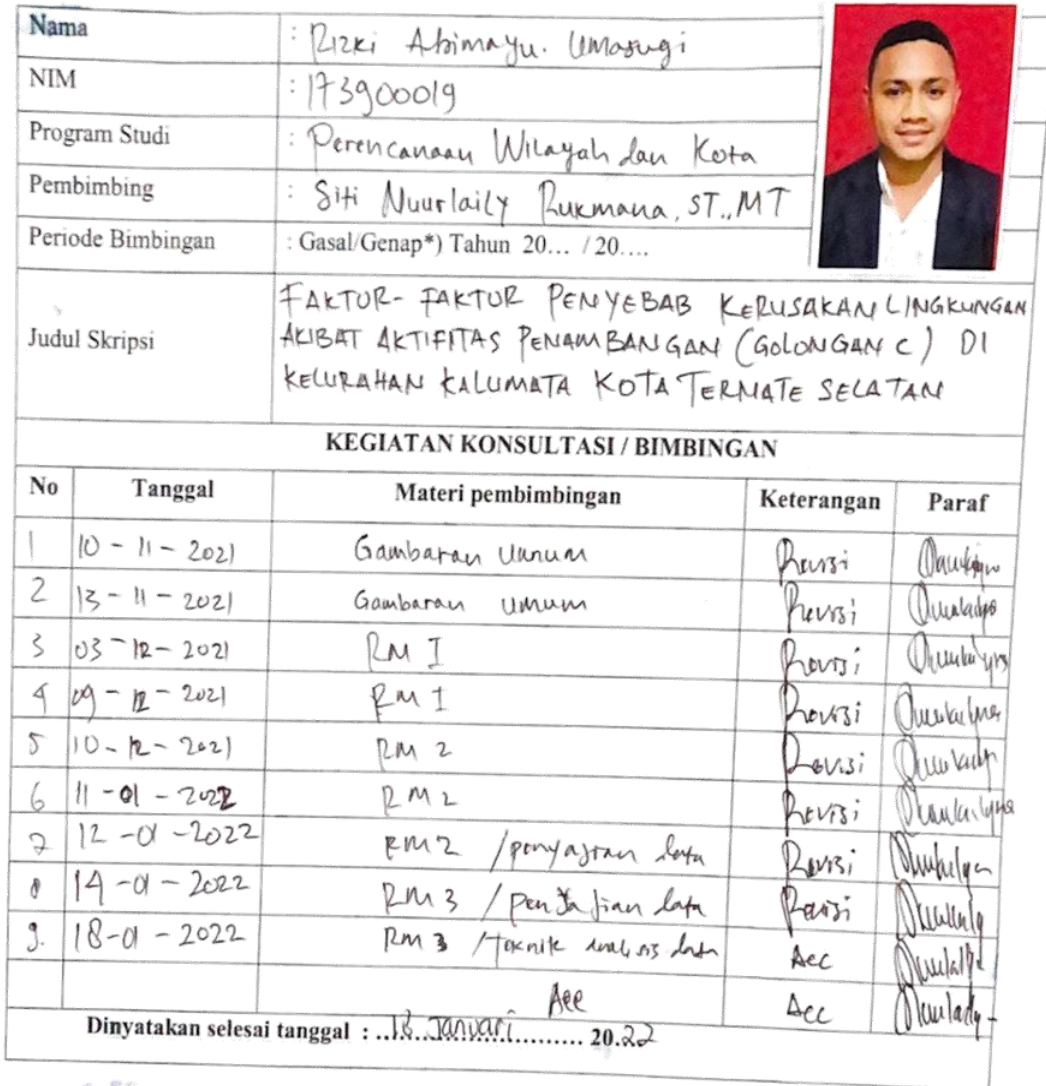 Nama : Rizki Abimayu. Umasugi
NIM : 173900019
Program Studi : Perencanaan Wilayah dan Kota
Pembimbing : Siti Nuurlaily Rukmana, ST., MT
Periode Bimbingan : Gasal/Genap*) Tahun 20... / 20....
Judul Skripsi FAKTOR-FAKTOR PENYEBAB KERUSAKAN LINGKUNGAN
AKIBAT AKTIFITAS PENAMBANGAN (GOLONGAN C) DI
KELURAHAN KALUMATA KOTA TERNATE SELATAN
KEGIATAN KONSULTASI / BIMBINGAN
No Tanggal Materi pembimbingan Keterangan Paraf
1 10 - 11 - 2021 Gambaran Umum Revisi
2 13 - 11 - 2021 Gambaran Umum Revisi
3 03 - 12 - 2021 RM I Revisi
4 09 - 12 - 2021 RM I Revisi
5 10 - 12 - 2021 RM 2 Revisi
6 11 - 01 - 2022 RM 2 Revisi
7 12 - 01 - 2022 RM 2 / penyajian data Revisi
8 14 - 01 - 2022 RM 3 / penyajian data Revisi
9. 18 - 01 - 2022 RM 3 / Teknik analisis data Acc
Acc Acc
Dinyatakan selesai tanggal : ..18. Januari............ 20.22